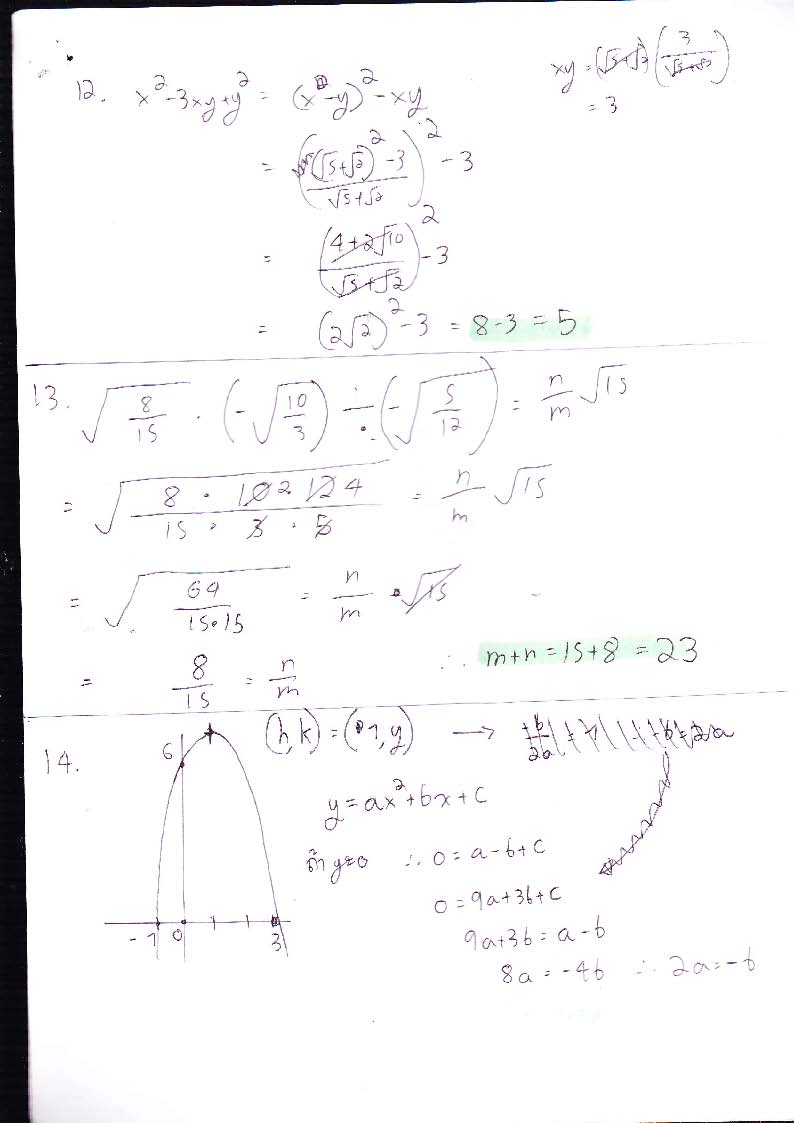 12. x² - 3xy + y² = (x - y)² - xy
xy = (√5+√2) (3/(√5+√2))
= 3
= (((√5+√2)² - 3)/(√5+√2))² - 3
= ((4+2√10)/(√5+√2))² - 3
= (2√2)² - 3 = 8-3 = 5
13. √(8/15) · (-√(10/3)) ÷ (-√(5/12)) = n/m √15
= √((8 · 10 2 12 4)/(15 · 3 · 5)) = n/m √15
= √(64/(15·15)) = n/m · √15
= 8/15 = n/m
∴ m+n = 15+8 = 23
14.
6
-1 0 3
(h,k) = (1,y) →
y = ax² + bx + c
ถ้า y=0 ∴ 0 = a-b+c
0 = 9a+3b+c
9a+3b = a-b
8a = -4b ∴ 2a = -b